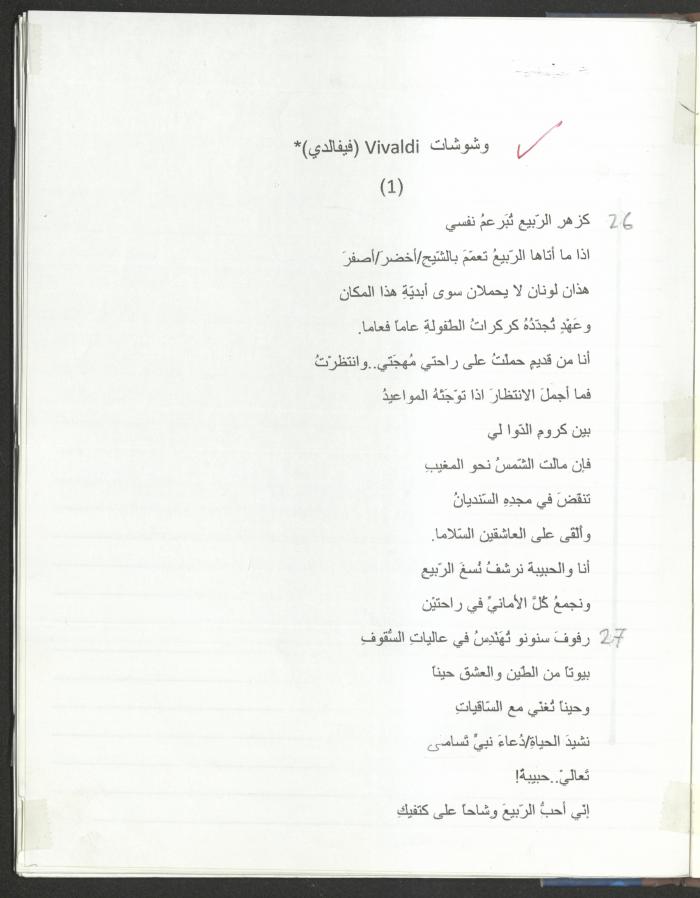 وشوشات Vivaldi (فيفالدي)*
(1)
26 كزهر الرّبيع تُبَرعمُ نفسي
اذا ما أتاها الرّبيعُ تعمّمَ بالشّيح/أخضرَ/أصفرَ
هذان لونان لا يحملان سوى أبديّةِ هذا المكان
وعَهْدٍ تُجدّدُهُ كركراتُ الطّفولةِ عاماً فعاما.
أنا من قديمٍ حملتُ على راحتي مُهجَتي..وانتظرْتُ
فما أجملَ الانتظارَ اذا توّجَتْهُ المواعيدُ
بين كروم الدّوا لي
فإن مالت الشّمسُ نحو المغيبِ
تنقضَ في مجدِهِ السّنديانُ
وألقى على العاشقين السّلاما.
أنا والحبيبة نرشفُ نُسغَ الرّبيع
ونجمعُ كُلَّ الأمانيِّ في راحتيْن
27 رفوفَ سنونو تُهَنْدِسُ في عالياتِ السُّقوفِ
بيوتاً من الطّين والعشق حيناً
وحيناً تُغنّي مع السّاقياتِ
نشيدَ الحياةِ/دُعاءَ نبيٍّ تَسامى
تَعاليْ..حبيبةُ!
إنّي أحبُّ الرّبيعَ وشاحاً على كتفيكِ